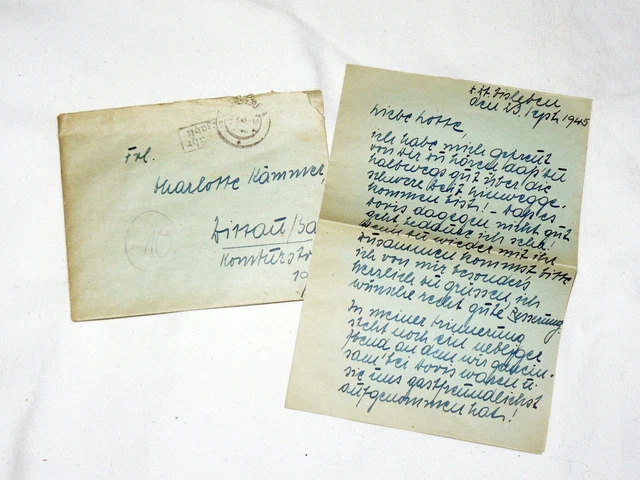 Frl.
Charlotte Kämmer
Zittau/Sa
Komturstr
10
z. Zt. Eisleben
den 23. Sept. 1945
Liebe Lotte!
ich habe mich gefreut
von Dir zu hören daß Du
halbwegs gut über die
schwere Zeit hinwegge-
kommen bist! – Daß es
Doris dagegen nicht gut
geht bedaure ich sehr!
Wenn Du wieder mit ihr
zusammen kommst bitte
ich von mir besonders
herzlich zu grüssen ich
wünsche recht gute Besserung
In meiner Erinnerung
steht noch ein
Abend an dem wir gemein-
sam bei Doris waren u.
sie uns gastfreundlichst
aufgenommen hat!